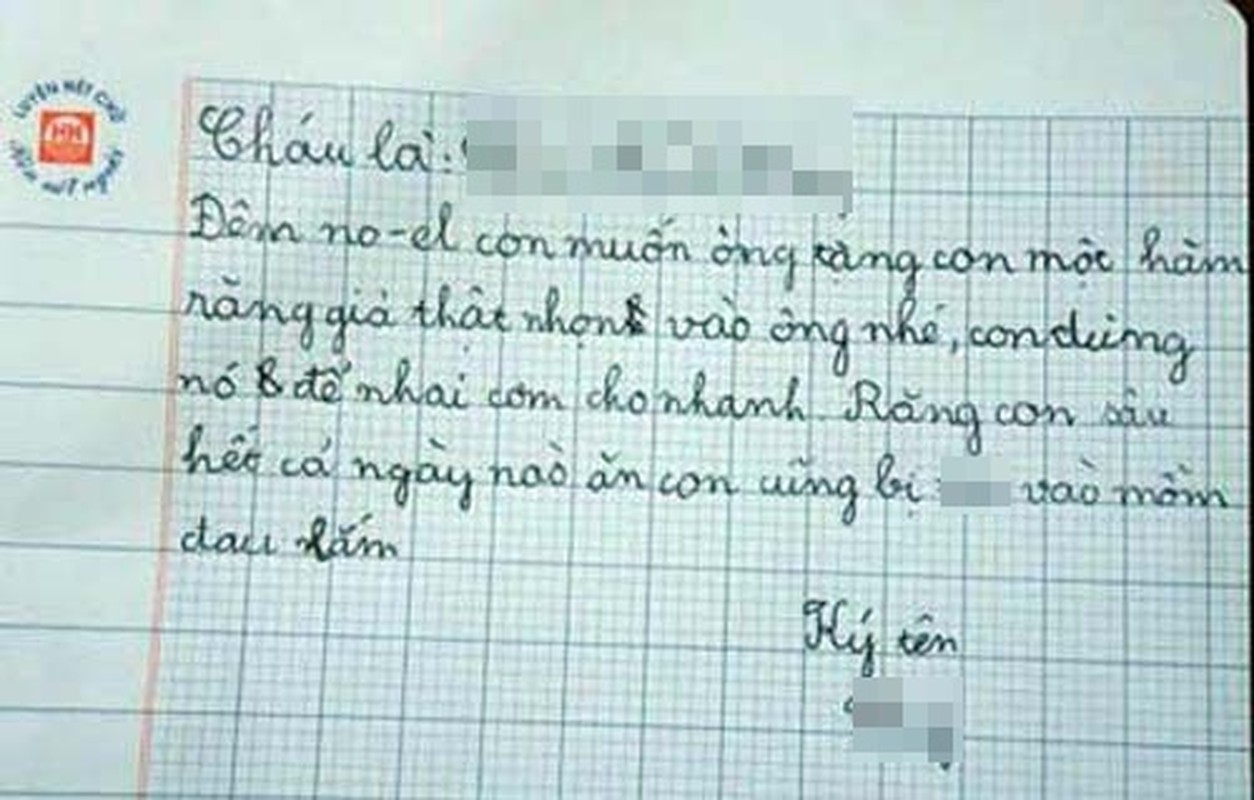 LUYỆN NÉT CHỮ
RÈN NẾT NGƯỜI
Cháu là:
Đêm no-el con muốn ông tặng con một hàm
răng giả thật nhọn vào ông nhé, con dùng
nó để nhai cơm cho nhanh. Răng con sâu
hết cả ngày nào ăn con cũng bị vào mồm
đau lắm
Ký tên